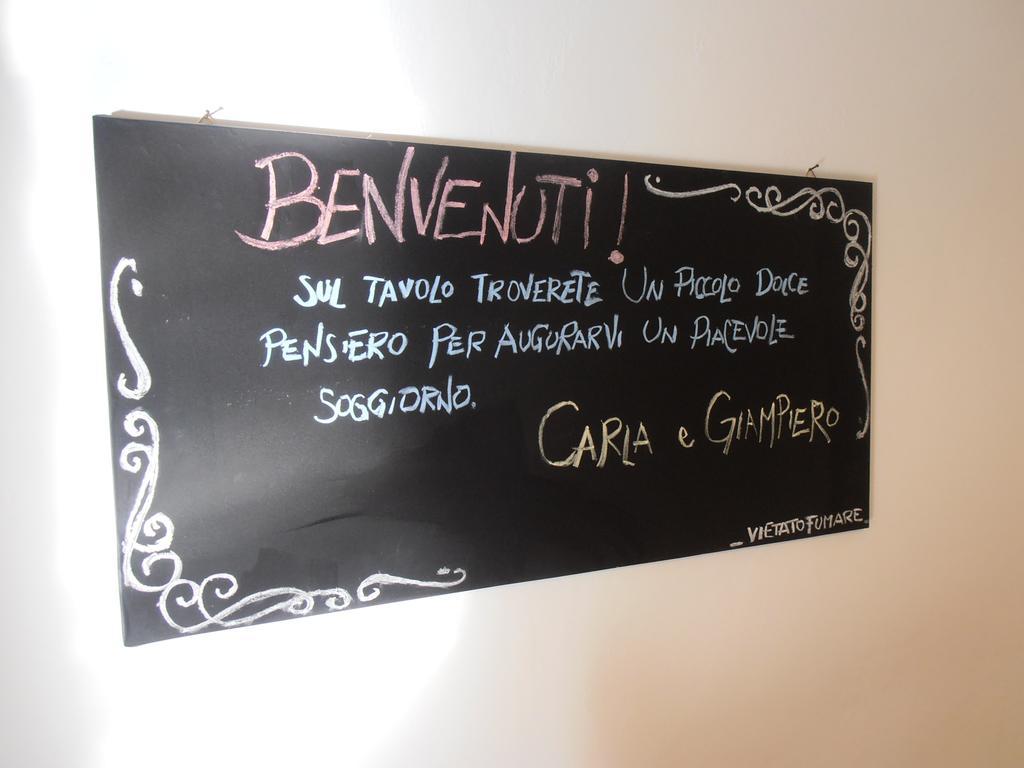 BENVENUTi!
SUL TAVOLO TROVERETE UN PICCOLO DOLCE
PENSIERO PER AUGURARVI UN PIACEVOLE
SOGGIORNO.
CARLA e GIAMPIERO
_VIETATO FUMARE_